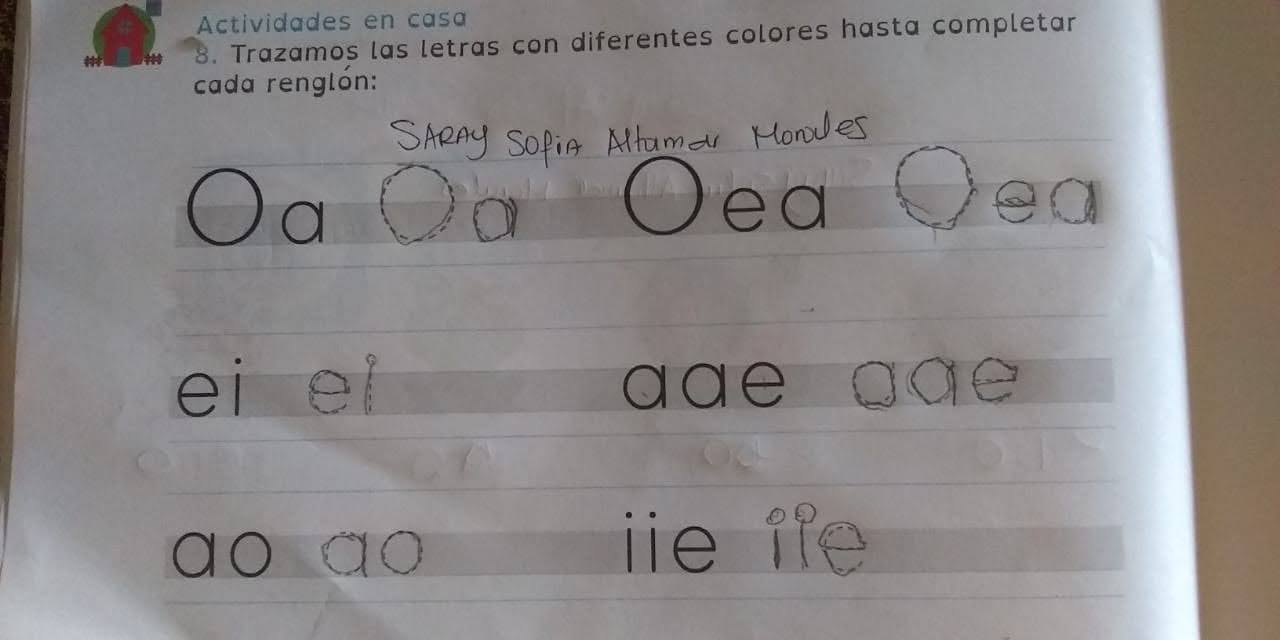 Actividades en casa
8. Trazamos las letras con diferentes colores hasta completar
cada renglón:
SARAY Sofia Altamar Morales
Oa Oa Oea Oea
ei ei aae aae
ao ao iie iie